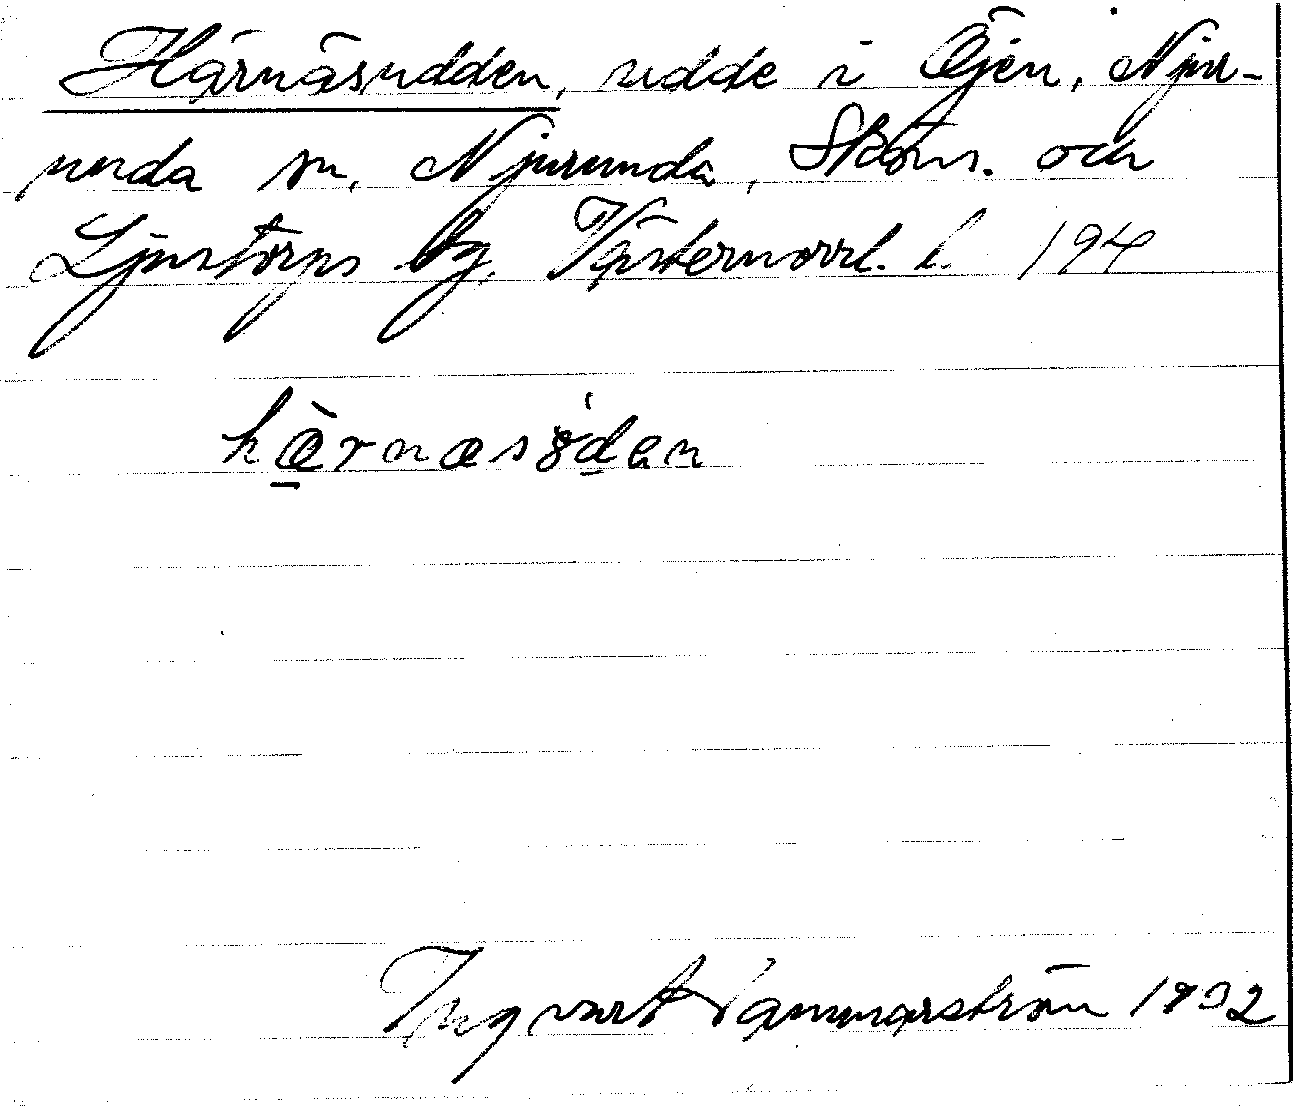 Härnäsudden, udde i Öjen, Njur-
unda sn, Njurunda, Sköns. och
Ljustorps tg, Västernorrl. l. 194
hærnæsɞden
Ingvart Hammarström 1932